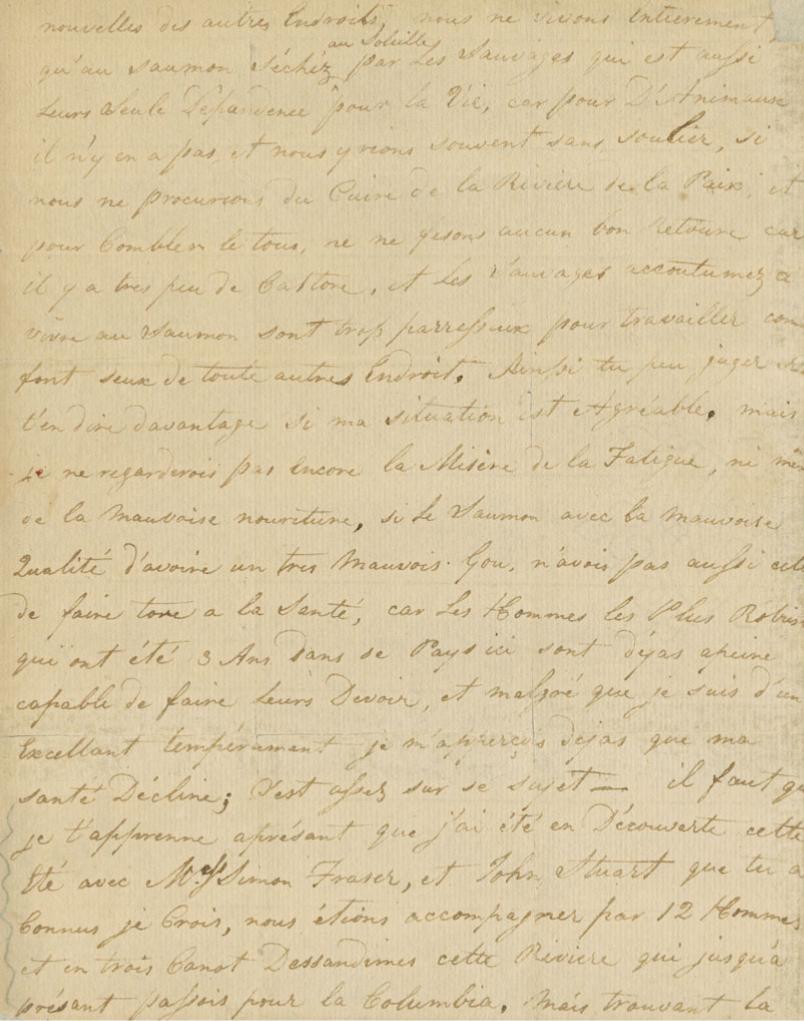 nouvelles des autres Endroits, nous ne vivons entierement
qu'au saumon séchez au Soleille par Les Sauvages qui est aussi
leurs Seule Dépandence pour la Vie, car pour D'Animaux
il n'y en a pas, et nous yrions souvent sans soulier, si
nous ne procurions du Cuire de la Riviere de la Paix, et
pour Combler le tous, ne ne fesons aucun bon Retoure car
il y a tres peu de Castore, et Les Sauvages accoutumez a
vivre au Saumon sont trop parresseux pour travailler com
font seux de toute autres Endroit. Ainsi tu peu juger
t'en dire davantage si ma situation est Agréable. mais
je ne regarderois pas encore la Misère de la Fatigue, ni mêm
de la mauvaise nouriture, si Le Saumon avec la mauvoise
Qualité d'avoire un tres Mauvois Gou, n'avois pas aussi cell
de faire tore a la Santé, car Les Hommes les Plus Robus
qui ont été 3 Ans dans se Pays ici sont déjas apeine
capable de faire Leurs Devoir, et malgré que je suis d'un
Excellant tempérament je m'apperçois déjas que ma
santé Décline; C'est assez sur se sujet — il faut qu
je t'apprenne aprésant que j'ai été en Découverte cette
Eté avec Mess Simon Fraser, et John Stuart que tu a
Connus je Crois, nous étions accompagner par 12 Hommes
et en trois Canot Dessandimes cette Riviere qui jusqu'a
présant passois pour la Columbia. Mais trouvant la